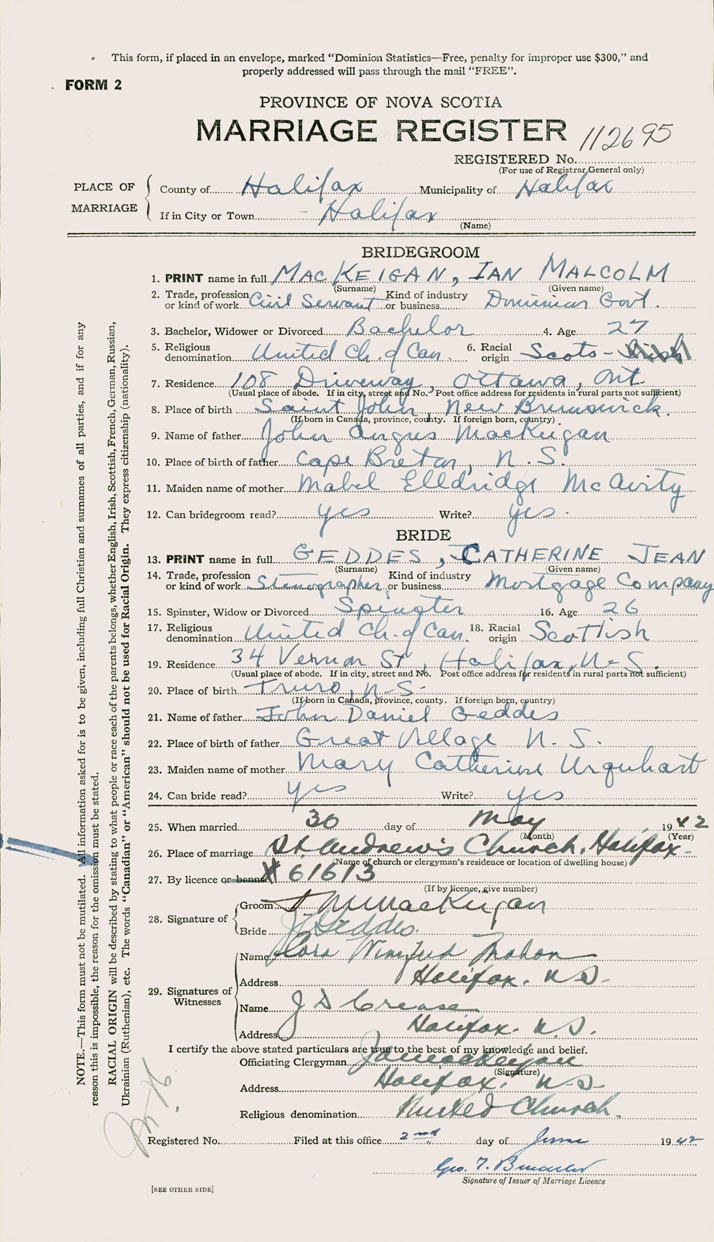 This form, if placed in an envelope, marked "Dominion Statistics—Free, penalty for improper use $300," and
properly addressed will pass through the mail "FREE".
FORM 2
PROVINCE OF NOVA SCOTIA
MARRIAGE REGISTER 112695
REGISTERED No.
(For use of Registrar General only)
PLACE OF MARRIAGE
County of Halifax Municipality of Halifax
If in City or Town - Halifax
(Name)
BRIDEGROOM
1. PRINT name in full MACKEIGAN, IAN MALCOLM
(Surname) (Given name)
2. Trade, profession or kind of work Civil Servant Kind of industry or business Dominion Govt.
3. Bachelor, Widower or Divorced Bachelor 4. Age 27
5. Religious denomination United Ch. of Can. 6. Racial origin Scots-
7. Residence 108 Driveway, Ottawa, Ont.
(Usual place of abode. If in city, street and No. Post office address for residents in rural parts not sufficient)
8. Place of birth Saint John, New Brunswick.
(If born in Canada, province, county. If foreign born, country)
9. Name of father John Angus MacKeigan
10. Place of birth of father Cape Breton, N.S.
11. Maiden name of mother Mabel Elldridge McAvity
12. Can bridegroom read? yes Write? yes.
BRIDE
13. PRINT name in full GEDDES, CATHERINE JEAN
(Surname) (Given name)
14. Trade, profession or kind of work Stenographer Kind of industry or business Mortgage Company
15. Spinster, Widow or Divorced Spinster 16. Age 26
17. Religious denomination United Ch. of Can. 18. Racial origin Scottish
19. Residence 34 Vernon St, Halifax, N.S.
(Usual place of abode. If in city, street and No. Post office address for residents in rural parts not sufficient)
20. Place of birth Truro, N.S.
(If born in Canada, province, county. If foreign born, country)
21. Name of father John Daniel Geddes
22. Place of birth of father Great Village N.S.
23. Maiden name of mother Mary Catherine Urquhart
24. Can bride read? yes Write? yes
25. When married 30 day of May 1942
(Month) (Year)
26. Place of marriage St. Andrew's Church, Halifax-
(Name of church or clergyman's residence or location of dwelling house)
27. By licence or banns 61613
(If by licence, give number)
28. Signature of
Groom I M MacKeigan
Bride J Geddes.
29. Signatures of Witnesses
Name Winifred Mahon
Address Halifax. N.S.
Name J D Crease
Address Halifax. N.S.
I certify the above stated particulars are true to the best of my knowledge and belief.
Officiating Clergyman
(Signature)
Address Halifax. N.S
Religious denomination United Church.
Registered No. Filed at this office 2nd day of June 1942
Geo. T.
Signature of Issuer of Marriage Licence
[SEE OTHER SIDE]
NOTE.—This form must not be mutilated. All information asked for is to be given, including full Christian and surnames of all parties, and if for any
reason this is impossible, the reason for the omission must be stated.
RACIAL ORIGIN will be described by stating to what people or race each of the parents belongs, whether English, Irish, Scottish, French, German, Russian,
Ukrainian (Ruthenian), etc. The words "Canadian" or "American" should not be used for Racial Origin. They express citizenship (nationality).